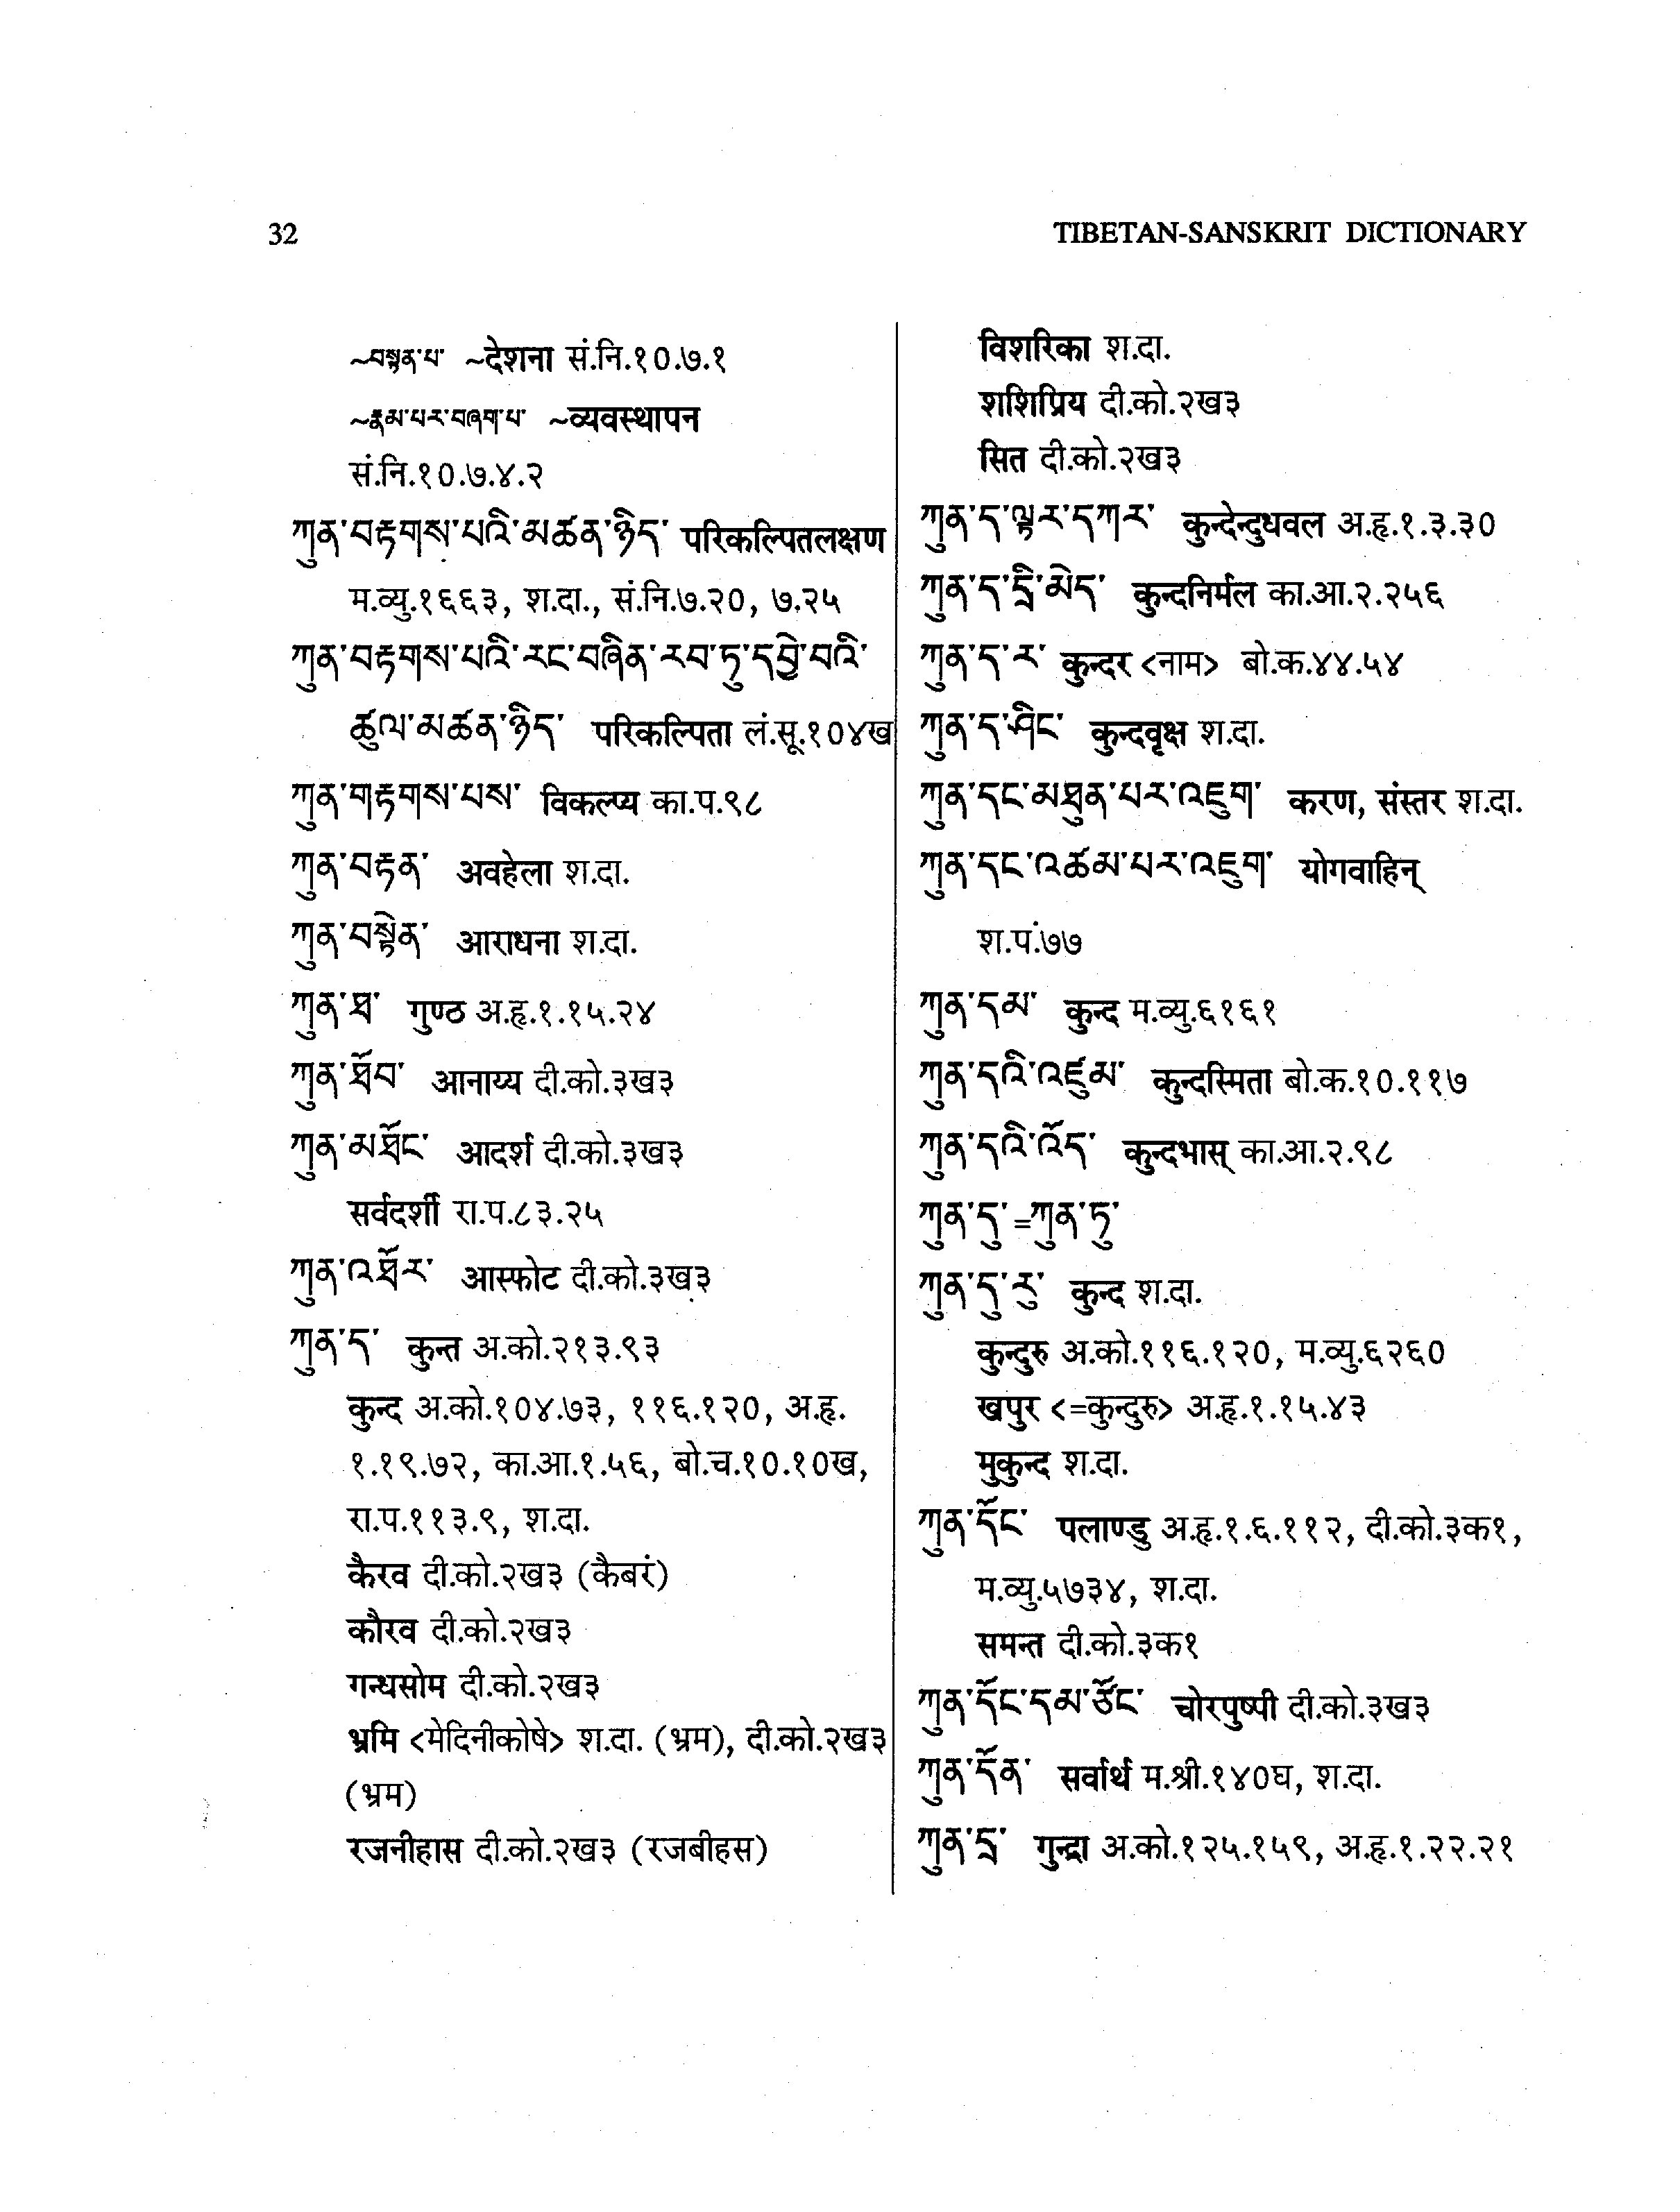 32
TIBETAN-SANSKRIT DICTIONARY
~བསྟན་པ་ ~देशना सं.नि.१०.७.१
~རྣམ་པར་བཞག་པ་ ~व्यवस्थापन
सं.नि.१०.७.४.२
ཀུན་བརྟགས་པའི་མཚན་ཉིད་ परिकल्पितलक्षण
म.व्यु.१६६३, श.दा., सं.नि.७.२०, ७.२५
ཀུན་བརྟགས་པའི་རང་བཞིན་རབ་ཏུ་དབྱེ་བའི་
ཚུལ་མཚན་ཉིད་ परिकल्पिता लं.सू.१०४ख
ཀུན་གརྟགས་པས་ विकल्प्य का.प.९८
ཀུན་བརྟན་ अवहेला श.दा.
ཀུན་བསྟེན་ आराधना श.दा.
ཀུན་ཐ་ गुण्ठ अ.हृ.१.१५.२४
ཀུན་ཐོབ་ आनाय्य दी.को.३ख३
ཀུན་མཐོང་ आदर्श दी.को.३ख३
सर्वदर्शी रा.प.८३.२५
ཀུན་འཐོར་ आस्फोट दी.को.३ख३
ཀུན་ད་ कुन्त अ.को.२१३.९३
कुन्द अ.को.१०४.७३, ११६.१२०, अ.हृ.
१.१९.७२, का.आ.१.५६, बो.च.१०.१०ख,
रा.प.११३.९, श.दा.
कैरव दी.को.२ख३ (कैबरं)
कौरव दी.को.२ख३
गन्धसोम दी.को.२ख३
भ्रमि <मेदिनीकोषे> श.दा. (भ्रम), दी.को.२ख३
(भ्रम)
रजनीहास दी.को.२ख३ (रजबीहस)
विशरिका श.दा.
शशिप्रिय दी.को.२ख३
सित दी.को.२ख३
ཀུན་ད་ལྟར་དཀར་ कुन्देन्दुधवल अ.हृ.१.३.३०
ཀུན་ད་དྲི་མེད་ कुन्दनिर्मल का.आ.२.२५६
ཀུན་ད་ར་ कुन्दर <नाम> बो.क.४४.५४
ཀུན་ད་ཤིང་ कुन्दवृक्ष श.दा.
ཀུན་དང་མཐུན་པར་འཇུག་ करण, संस्तर श.दा.
ཀུན་དང་འཚམ་པར་འཇུག་ योगवाहिन्
श.पं.७७
ཀུན་དམ་ कुन्द म.व्यु.६१६१
ཀུན་དའི་འཛུམ་ कुन्दस्मिता बो.क.१०.११७
ཀུན་དའི་འོད་ कुन्दभास् का.आ.२.९८
ཀུན་དུ་=ཀུན་ཏུ་
ཀུན་དུ་རུ་ कुन्द श.दा.
कुन्दुरु अ.को.११६.१२०, म.व्यु.६२६०
खपुर <=कुन्दुरु> अ.हृ.१.१५.४३
मुकुन्द श.दा.
ཀུན་དོང་ पलाण्डु अ.हृ.१.६.११२, दी.को.३क१,
म.व्यु.५७३४, श.दा.
समन्त दी.को.३क१
ཀུན་དོང་དམ་ཙོང་ चोरपुष्पी दी.को.३ख३
ཀུན་དོན་ सर्वार्थ म.श्री.१४०घ, श.दा.
ཀུན་དྲ་ गुन्द्रा अ.को.१२५.१५९, अ.हृ.१.२२.२१